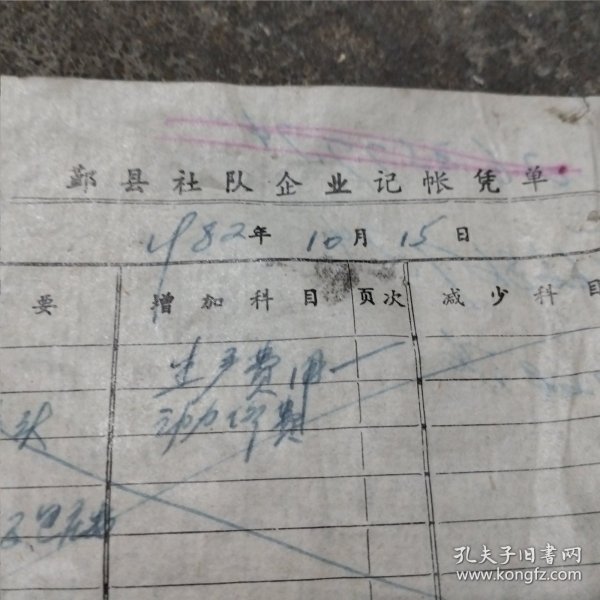 鄞县社队企业记帐凭单
1982年 10月 15日
要 增加科目 页次 减少科目
生产费用
头
孔夫子旧书网
www.kongfz.com